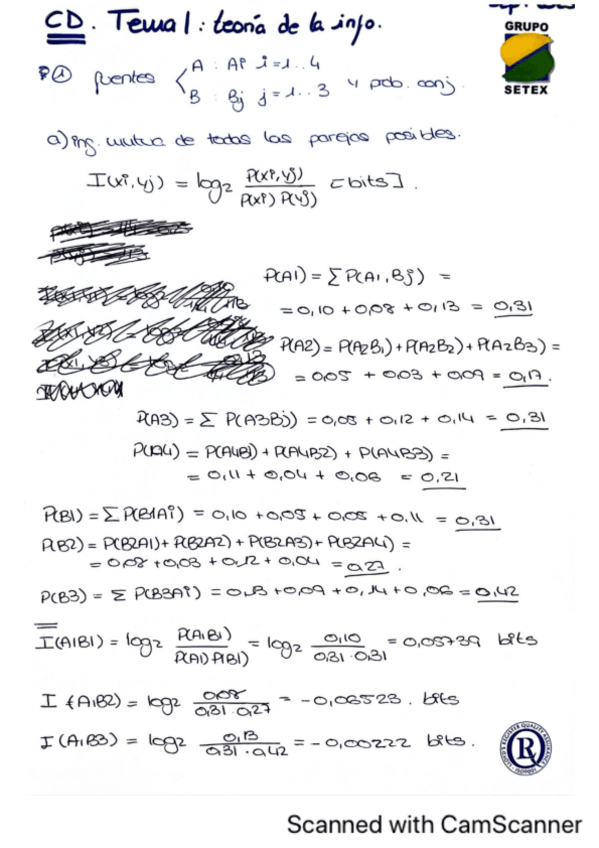 CD. Tema 1: teoría de la info.
GRUPO
SETEX
P① fuentes A : Ai i=1..4
B : Bj j=1..3 y prob. conj.
a) inf. mutua de todas las parejas posibles.
I(xi,yj) = log2 P(xi,yj) / P(xi) P(yj) [bits].
P(A1) = Σ P(A1,Bj) =
= 0,10 + 0,08 + 0,13 = 0,31
P(A2) = P(A2B1) + P(A2B2) + P(A2B3) =
= 0,05 + 0,03 + 0,09 = 0,17.
P(A3) = Σ P(A3Bj) = 0,05 + 0,12 + 0,14 = 0,31
P(A4) = P(A4B1) + P(A4B2) + P(A4B3) =
= 0,11 + 0,04 + 0,06 = 0,21
P(B1) = Σ P(B1Ai) = 0,10 + 0,05 + 0,05 + 0,11 = 0,31
P(B2) = P(B2A1) + P(B2A2) + P(B2A3) + P(B2A4) =
= 0,08 + 0,03 + 0,12 + 0,04 = 0,27.
P(B3) = Σ P(B3Ai) = 0,13 + 0,09 + 0,14 + 0,06 = 0,42
I(A1B1) = log2 P(A1B1) / P(A1) P(B1) = log2 0,10 / 0,31·0,31 = 0,05739 bits
I(A1B2) = log2 0,08 / 0,31·0,27 = -0,06523. bits
I(A1B3) = log2 0,13 / 0,31·0,42 = -0,00222 bits.
Scanned with CamScanner